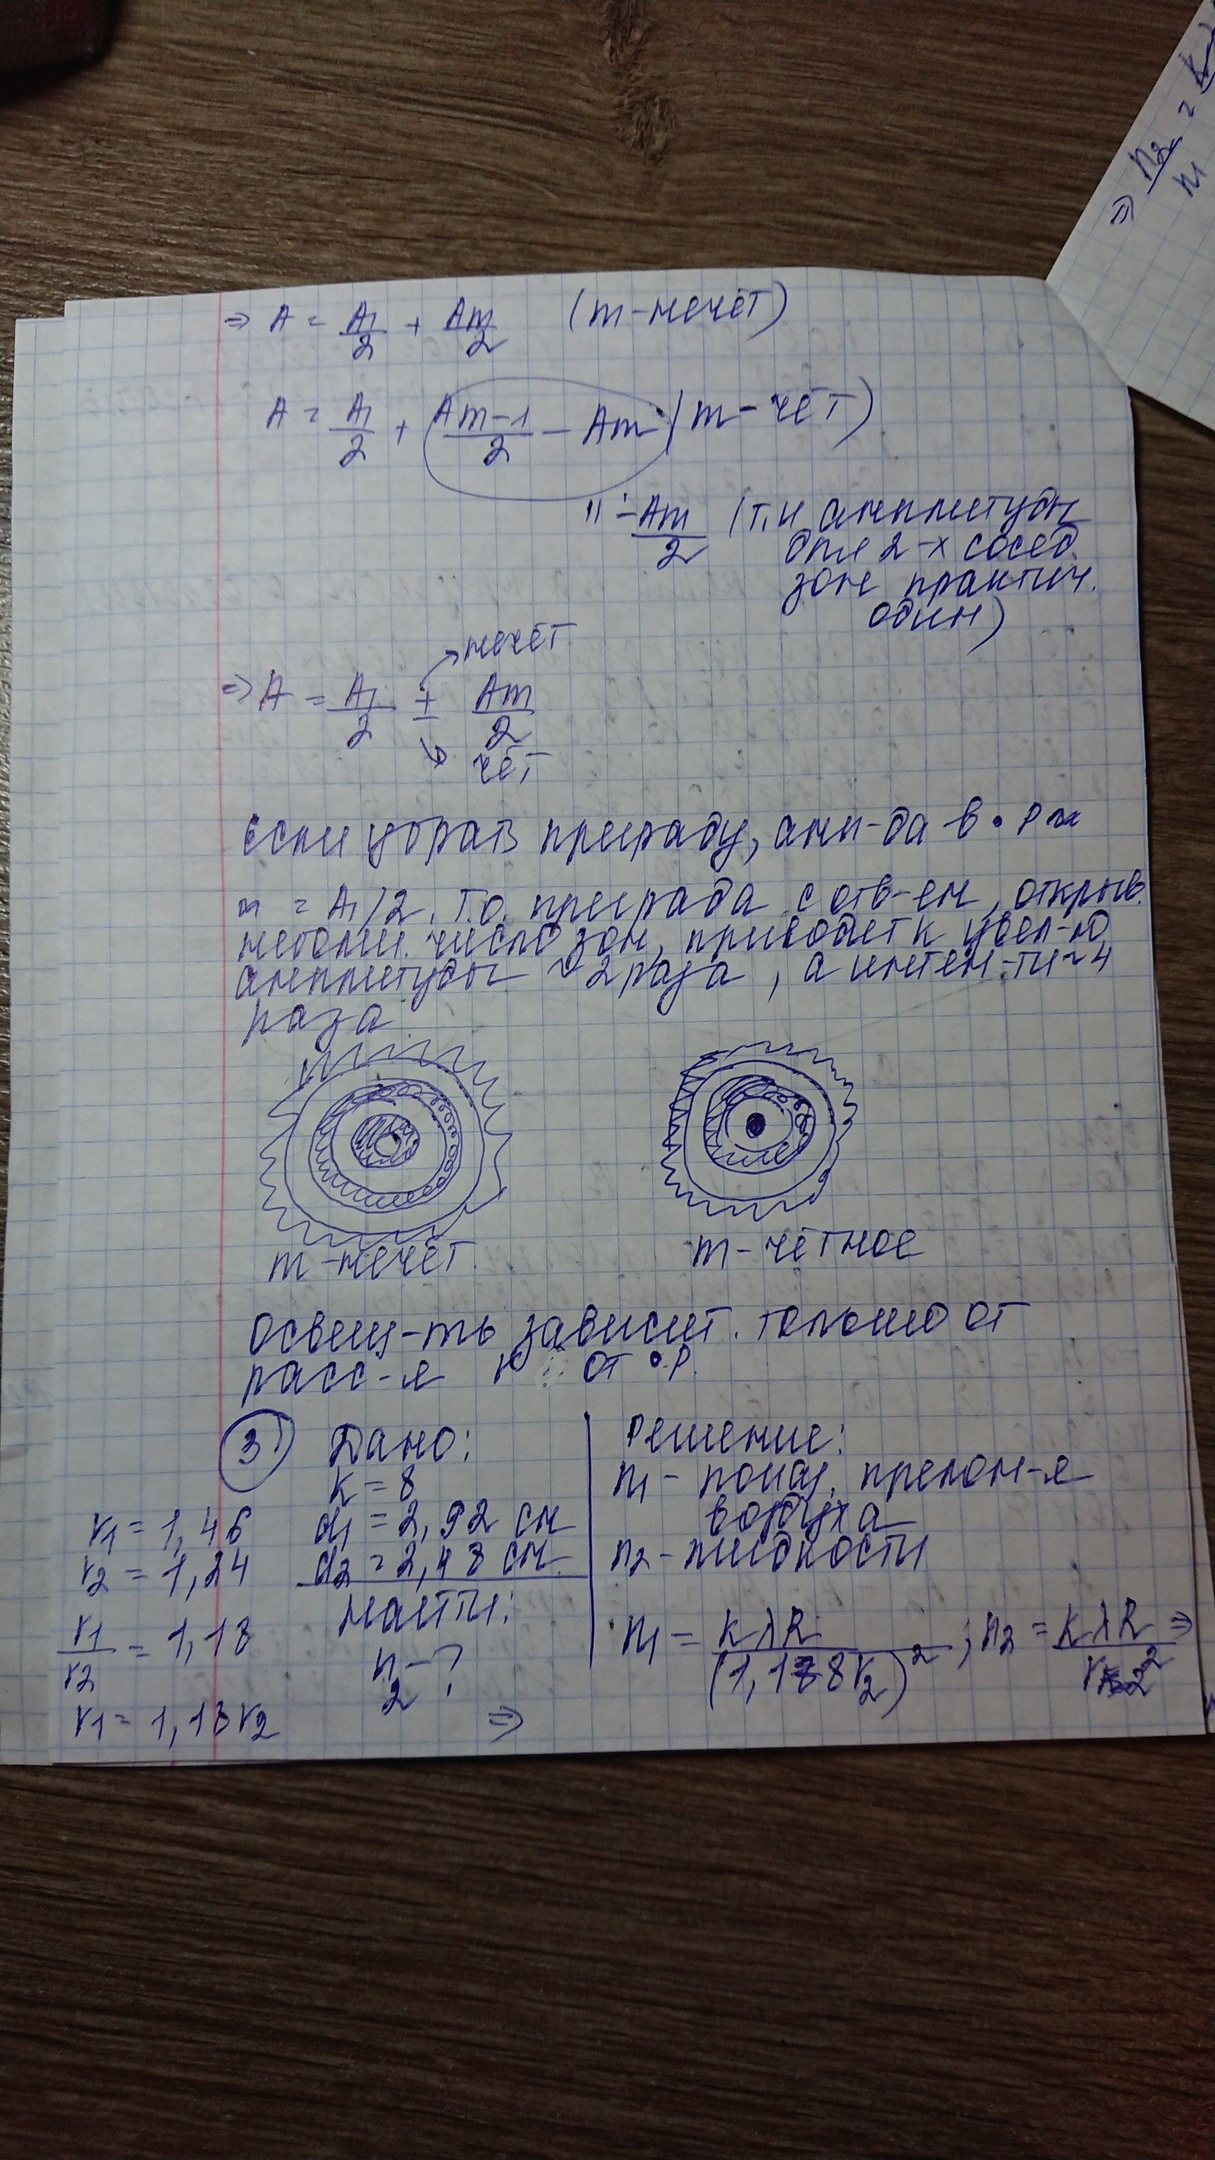 ⇒ n2/n1 =
⇒ A = A1/2 + Am/2 (m-нечёт)
A = A1/2 + Am-1/2 - Am (m-чёт)
" -Am/2 (т.к амплитуды
для 2-х сосед.
зон практич.
один)
нечёт
⇒ A = A1/2 ± Am/2
чёт
Если убрать преграду, амп-да в • P ж
= A1/2. Т.о. преграда с отв-ем, открыв.
небольш. число зон, приводит к увел-ю
амплитуды ~ 2 раза, а интен-ти ~ 4
раза
m-нечёт.
m-чётное
Освещ-ть зависит. только от
расс-я от • P.
3) Дано:
k = 8
d1 = 2,92 см
d2 = 2,48 см
Найти:
n2 - ?
r1 = 1,46
r2 = 1,24
r1/r2 = 1,18
r1 = 1,18 r2
⇒
Решение:
n1 - показ. прелом-я
воздуха
n2 - жидкости
n1 = kλR/(1,18 r2)²; n2 = kλR/r2² ⇒